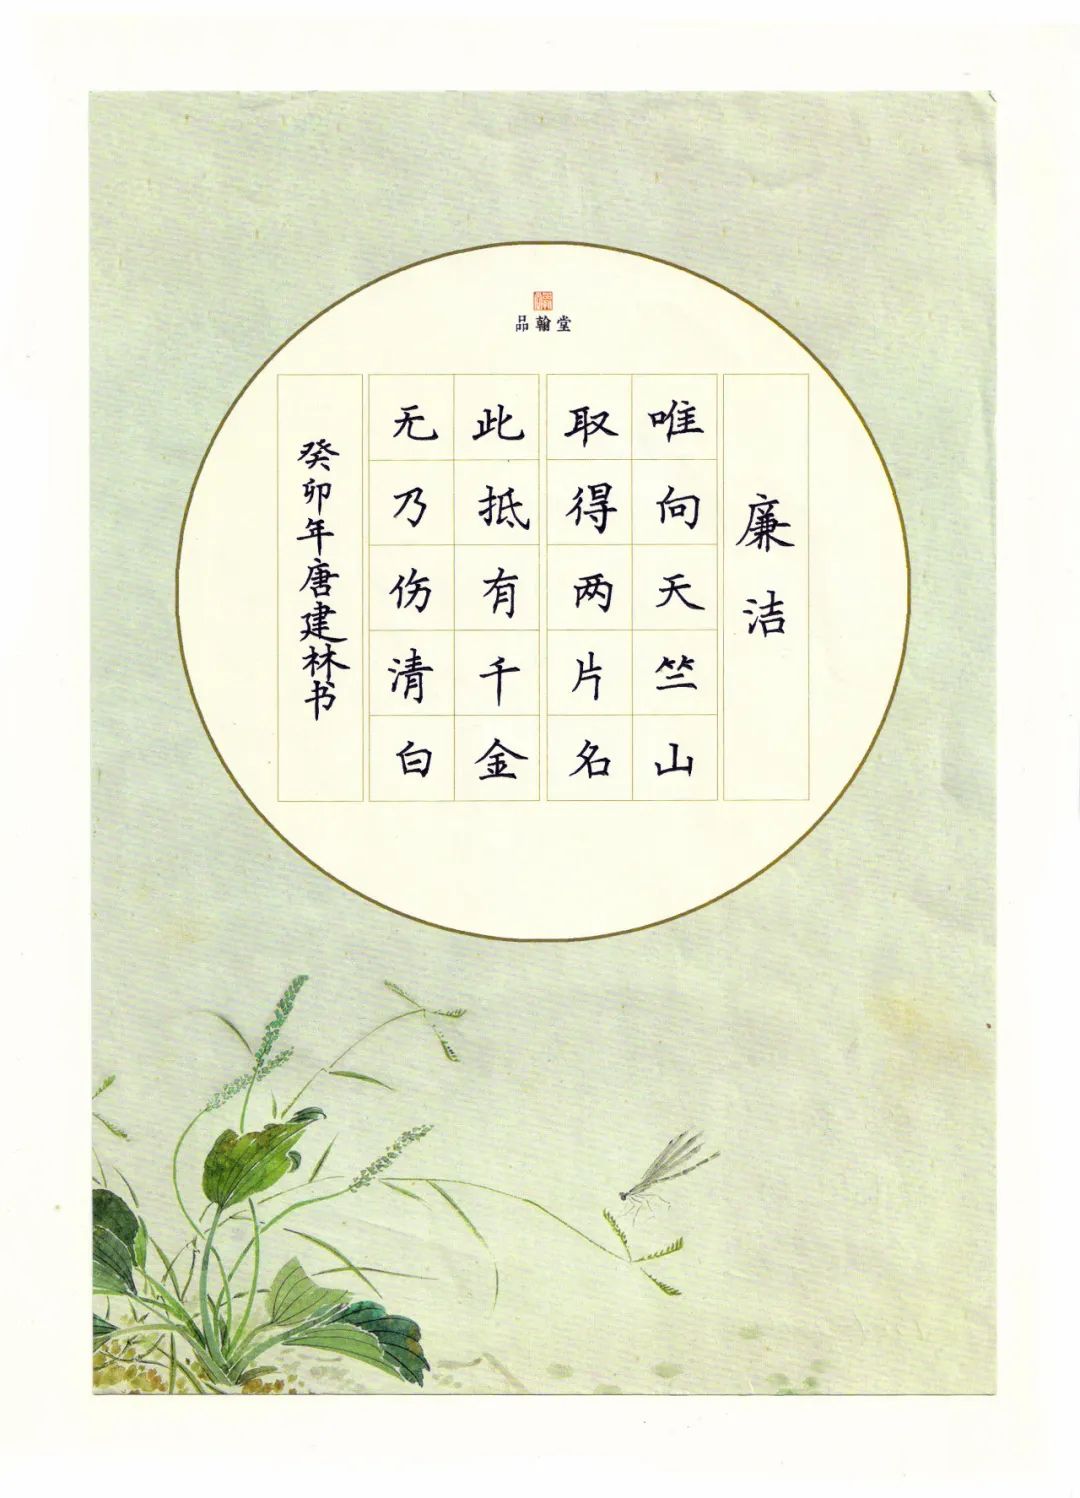 品翰堂
廉洁
唯向天竺山
取得两片名
此抵有千金
无乃伤清白
癸卯年唐建林书